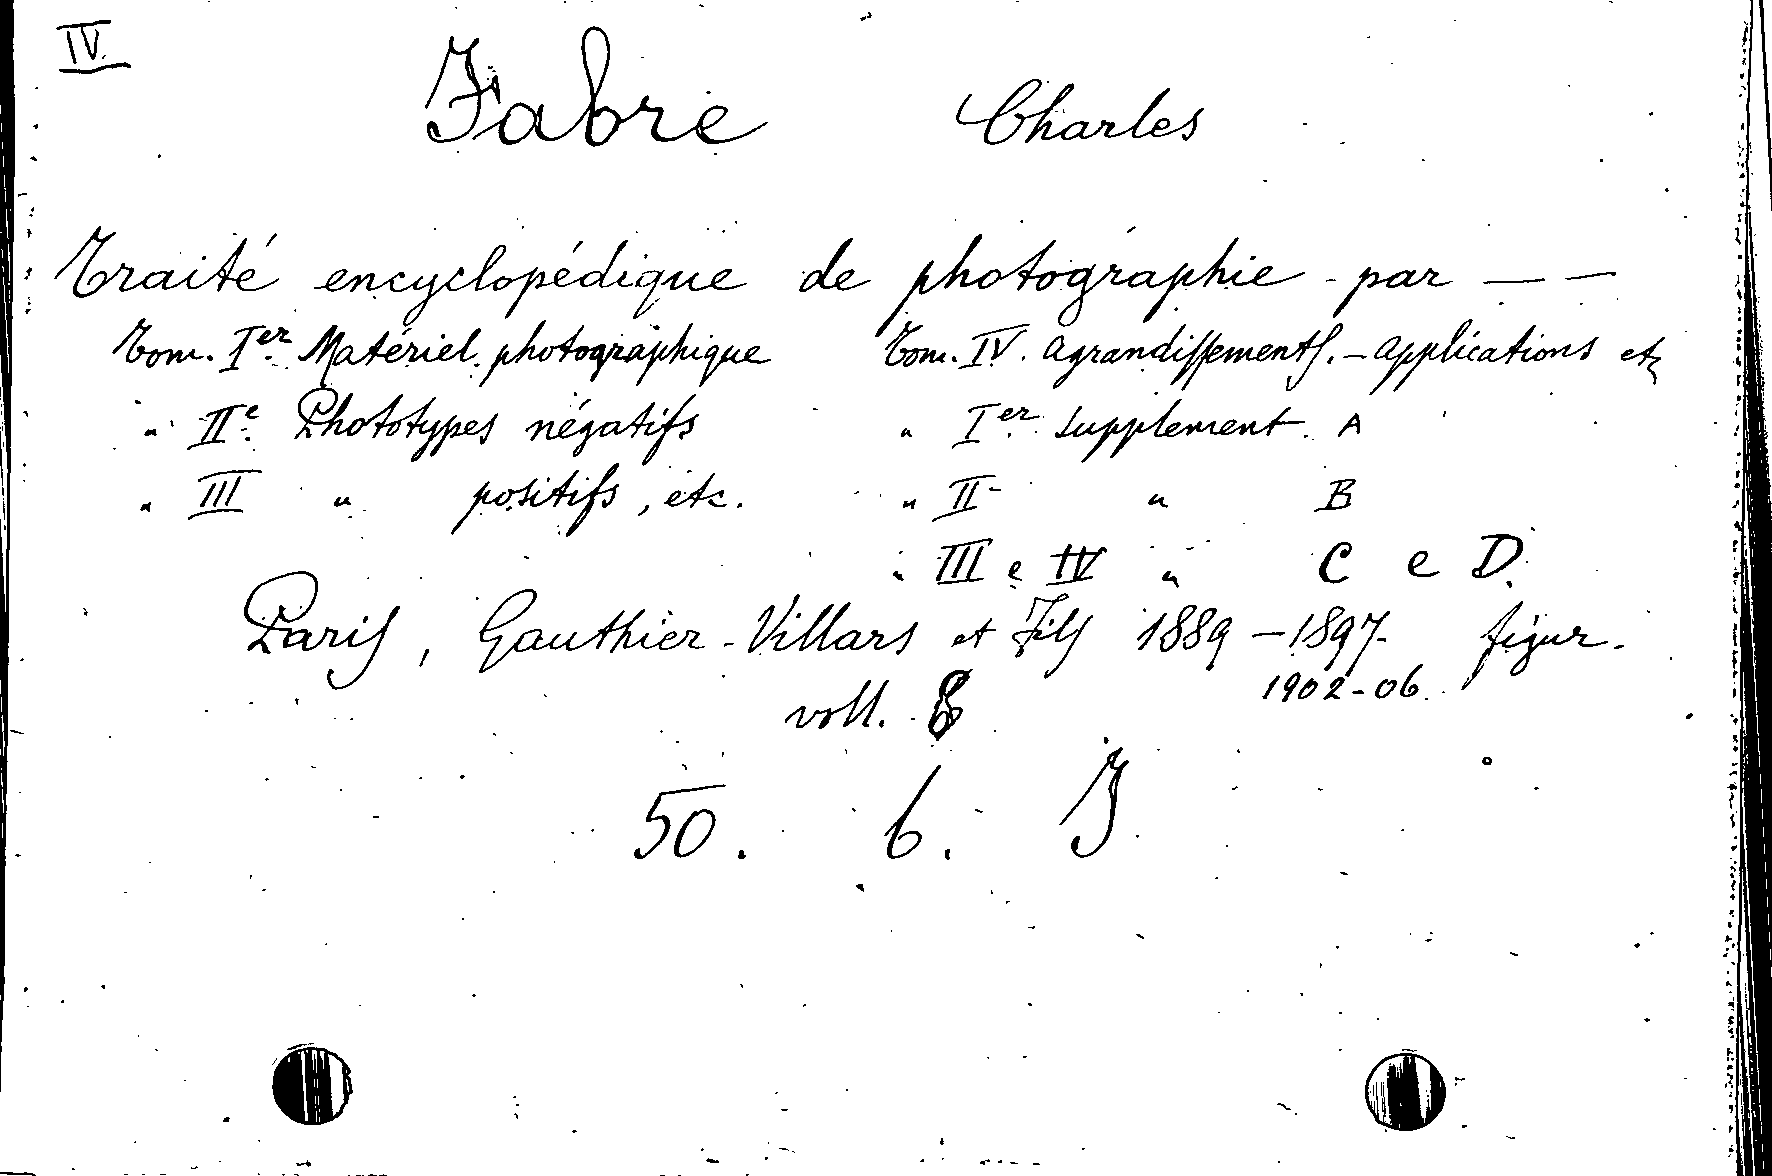 IV.
Fabre Charles
Traité encyclopédique de photographie - par — —
Tom. Ier Matériel photographique Tom. IV. Agrandissements. - Applications etc
" IIe Phototypes négatifs " Ier Supplement A
" III " positifs, etc. " II " B
" III e IV " C e D.
Paris, Gauthier-Villars et Fils 1889 - 1897- figur.
1902-06.
voll. 8
50. 6. I